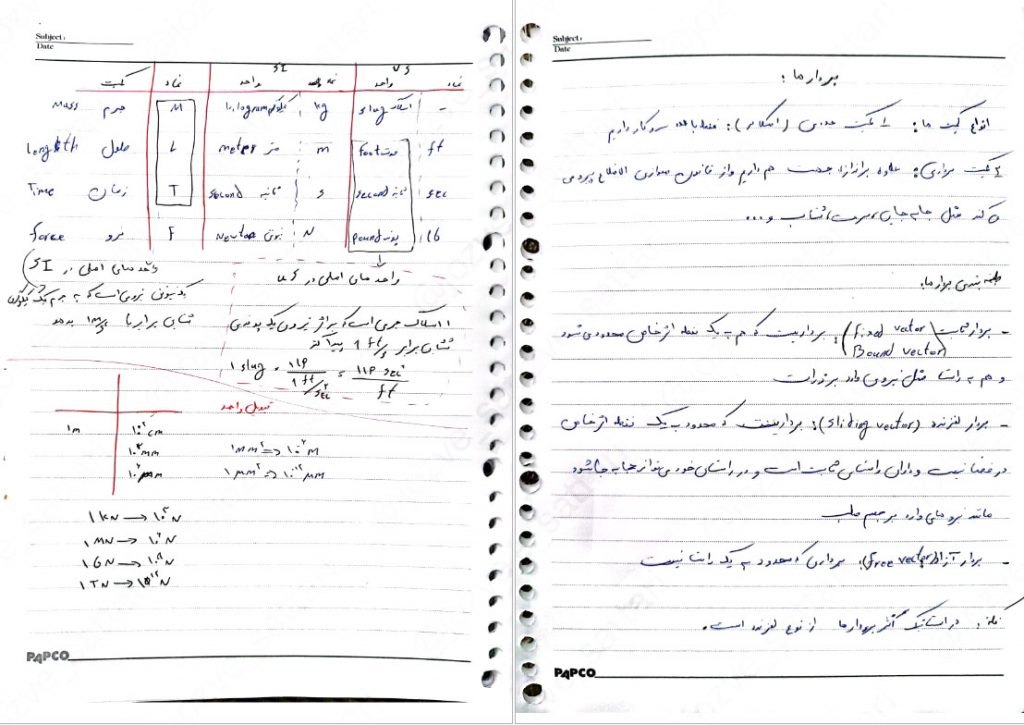 Subject:
Date
SI US
کمیت نماد واحد نماد واحد نماد
Mass جرم M کیلوگرم kilogram kg اسلاگ slug -
Length طول L متر meter m فوت foot ft
Time زمان T ثانیه second s ثانیه second sec
force نیرو F نیوتن Newton N پوند pound lb
واحدهای اصلی در SI
واحدهای اصلی در US
یک نیوتن نیروی است که به جرم یک کیلوگرم
شتابی برابر با 1 m/s² بدهد
1 اسلاگ جرمی است که بر اثر نیروی یک پوندی
شتابی برابر 1 ft/s² پیدا کند
1 slug = 1lb / 1 ft/sec² = 1lb sec² / ft
تبدیل واحد
1m 10² cm
10³ mm
μm
1 mm²
1 μm²
1 KN → 10³ N
1 MN → N
1 GN → N
1 TN → 10¹² N
PAPCO
Subject:
Date
بردارها:
انواع کمیت ها: 1- کمیت عددی (اسکالر): فقط با عدد سروکار داریم
2- کمیت برداری: علاوه بر اندازه جهت هم داریم و از قانون متوازی الاضلاع پیروی
می کند مثل جابه جایی، سرعت، شتاب و...
طبقه بندی بردارها:
- بردار ثابت (fixed vector Bound vector): برداریست که هم به یک نقطه اثر خاص محدود می شود
و هم به راستا مثل نیروی وارد بر ذرات
- بردار لغزنده (sliding vector): برداریست که محدود به یک نقطه اثر خاص
در فضا نیست و دارای راستای ثابت است و در راستای خود می تواند جابه جا شود
مانند نیروهای وارد بر جسم صلب
- بردار آزاد (free vector): برداری که محدود به یک راستا نیست
نکته: در استاتیک اکثر بردارها از نوع لغزنده است.
PAPCO